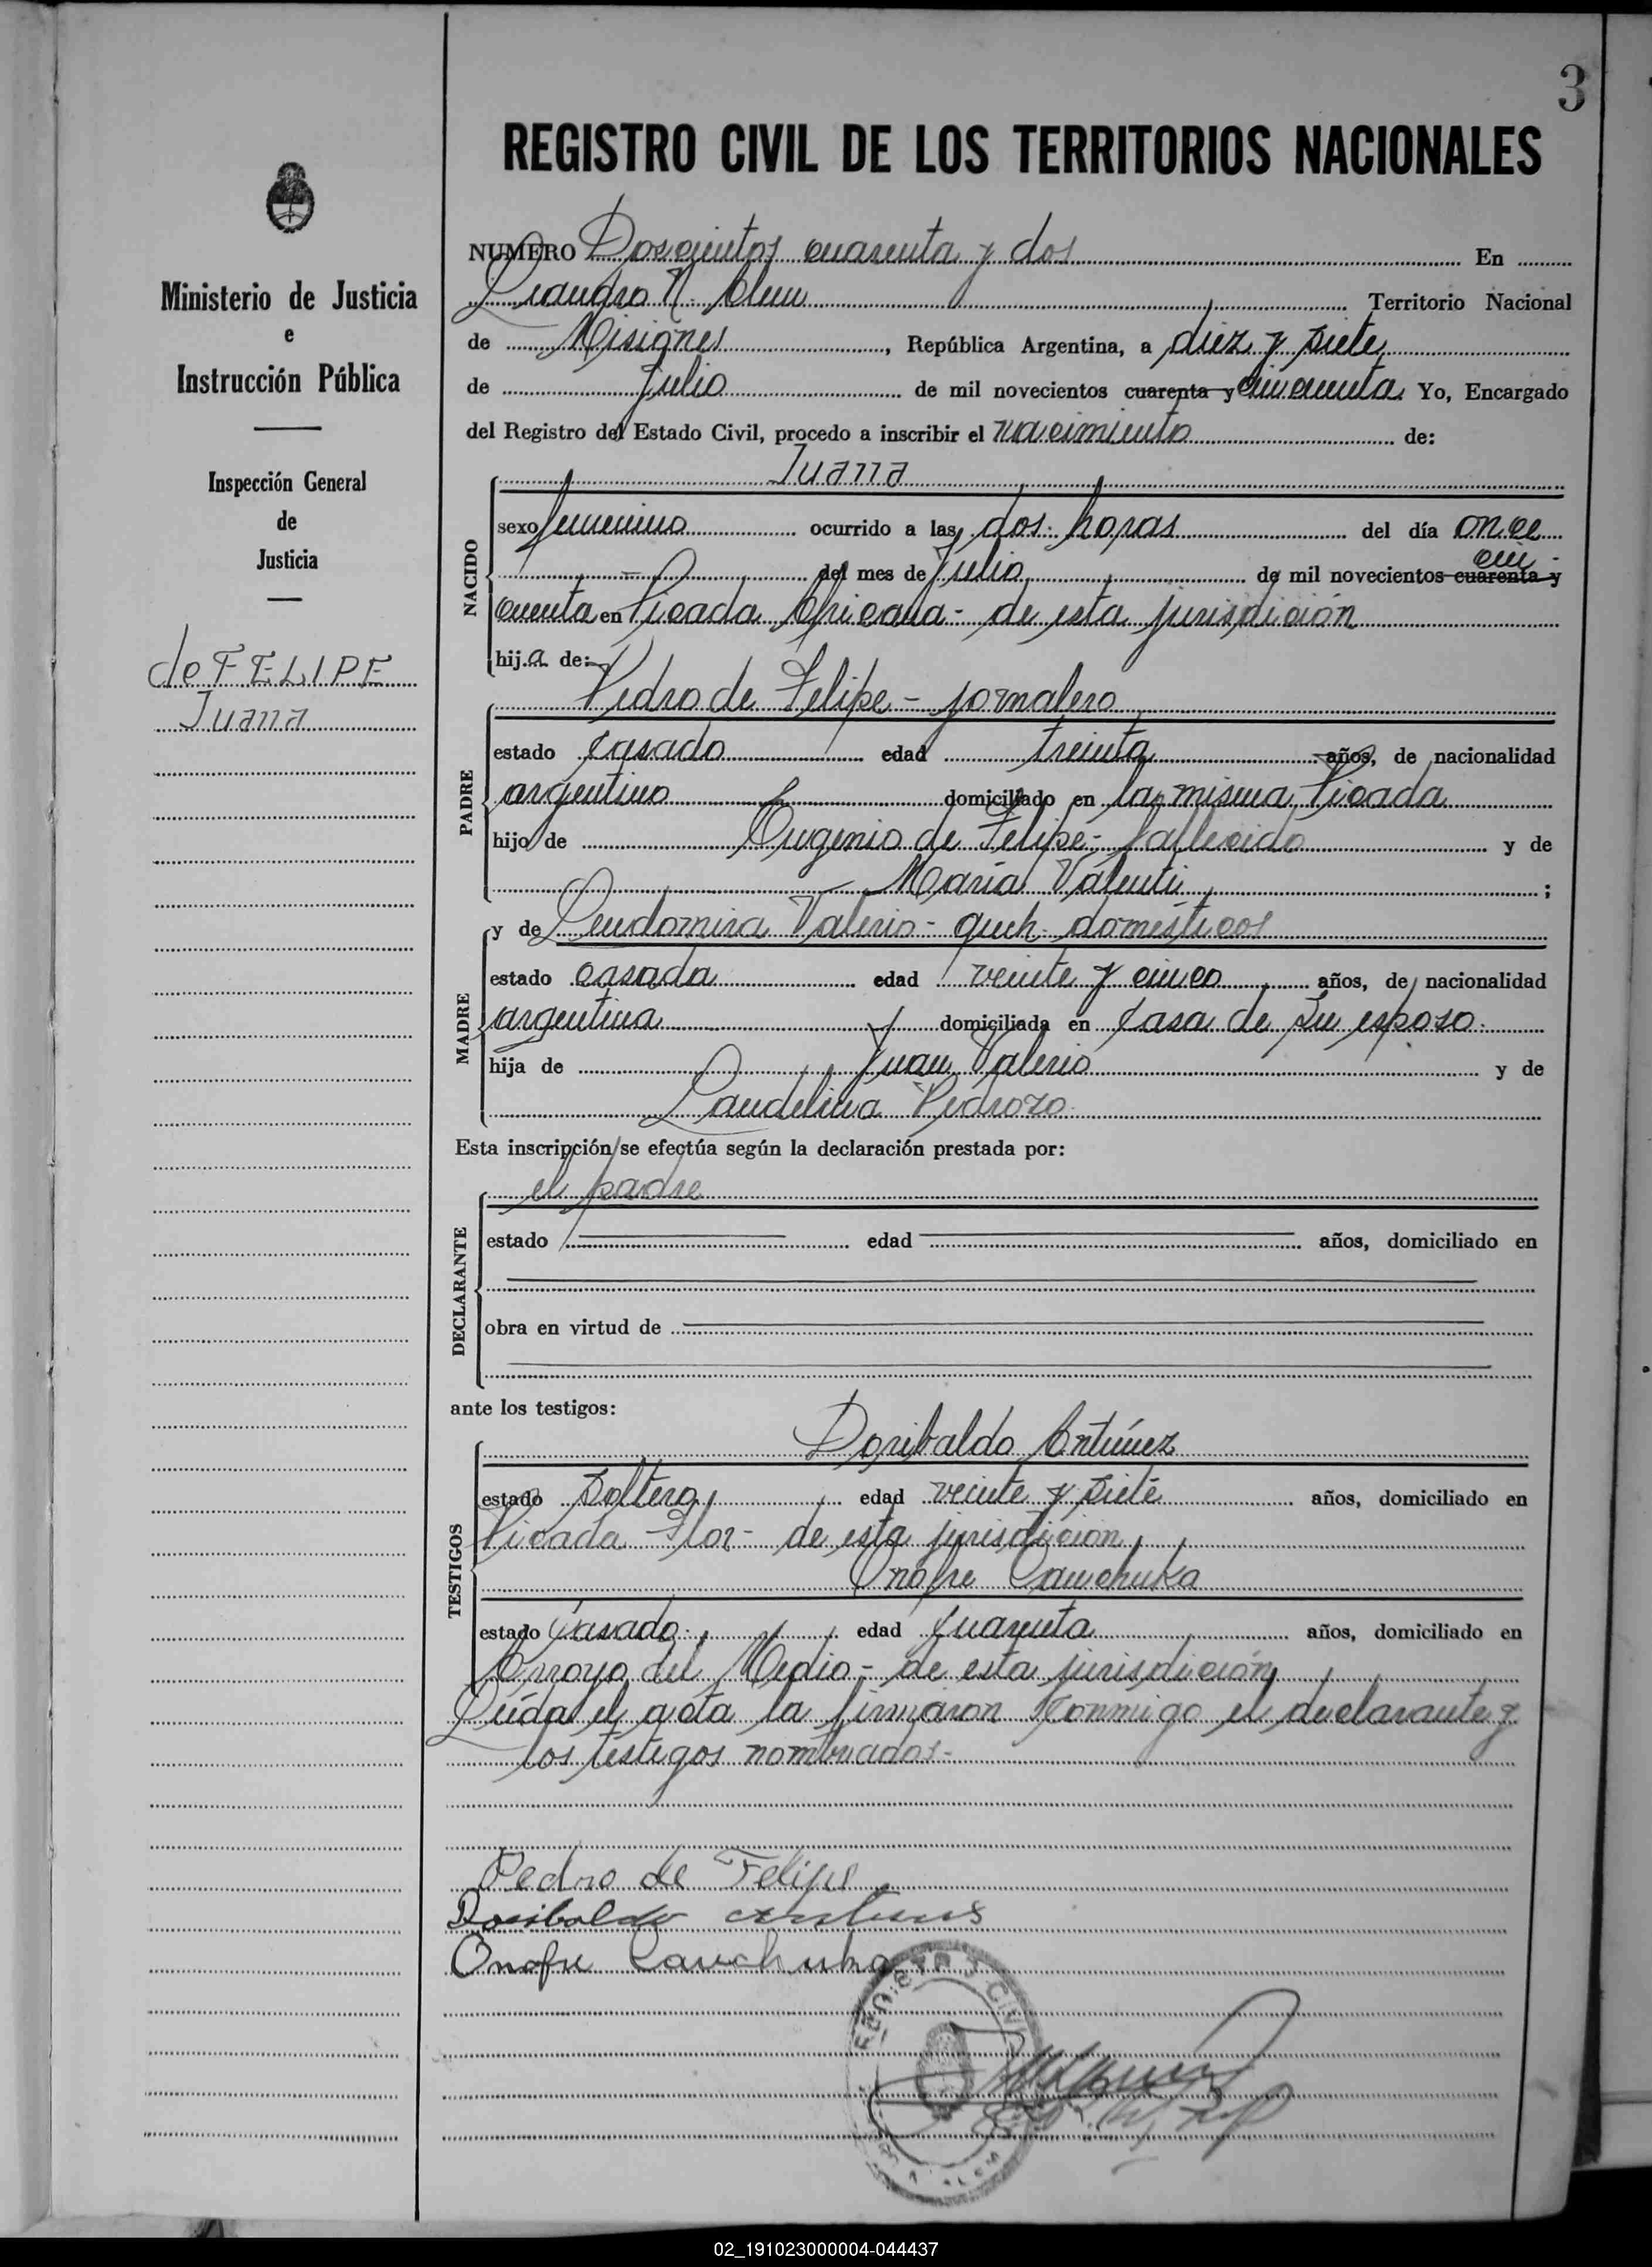 3
REGISTRO CIVIL DE LOS TERRITORIOS NACIONALES
Ministerio de Justicia
e
Instrucción Pública
Inspección General
de
Justicia
de FELIPE
Juana
NUMERO Doscientos cuarenta y dos En
Leandro N. Alem Territorio Nacional
de Misiones, República Argentina, a diez y siete
de Julio de mil novecientos cuarenta y cincuenta Yo, Encargado
del Registro del Estado Civil, procedo a inscribir el nacimiento de:
Juana
NACIDO
sexo femenino ocurrido a las dos horas del día once
cin-
del mes de Julio de mil novecientos cuarenta y
cuenta en Picada - de esta jurisdición
hija de:
Pedro de Felipe - jornalero
PADRE
estado casado edad treinta años, de nacionalidad
argentino domiciliado en la misma Picada
hijo de Eugenio de Felipe - fallecido y de
María Valenti;
MADRE
y de Valerio - queh. domésticos
estado casada edad veinte y cinco años, de nacionalidad
argentina domiciliada en casa de su esposo.
hija de Juan Valerio y de
Laudelina Pedrozo
Esta inscripción se efectúa según la declaración prestada por:
el padre
DECLARANTE
estado edad años, domiciliado en
obra en virtud de
ante los testigos:
Doribaldo Antúnez
TESTIGOS
estado soltero edad veinte y siete años, domiciliado en
Picada Flor - de esta jurisdición
Onofre Cawchuka
estado casado edad cuarenta años, domiciliado en
Arroyo del Medio - de esta jurisdición
Leída el acta la firmaron conmigo el declarante y
los testigos nombrados -
Pedro de Felipe
Doribaldo
Onofre
REGISTRO CIVIL
02_191023000004-044437